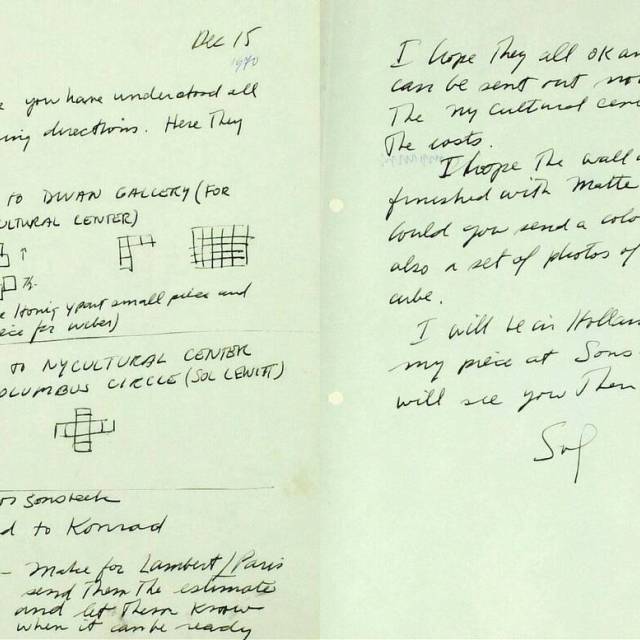 Dec 15
1970
you have understood all
ing directions. Here They
TO DWAN GALLERY (FOR
CULTURAL CENTER)
Honig & part small piece and
piece for Weber)
TO NY CULTURAL CENTER
COLUMBUS CIRCLE (SOL LEWITT)
Sonsbeek
d to Konrad
— Make for Lambert/Paris
send Them The estimate
and let Them know
when it can be ready
I hope They all OK an
can be sent out
The NY Cultural Cen
The costs.
I hope The wall
finished with Matte
Could you send a colo
also a set of photos of
cube.
I will be in Hollan
my piece at Sons
will see you Then
Sol